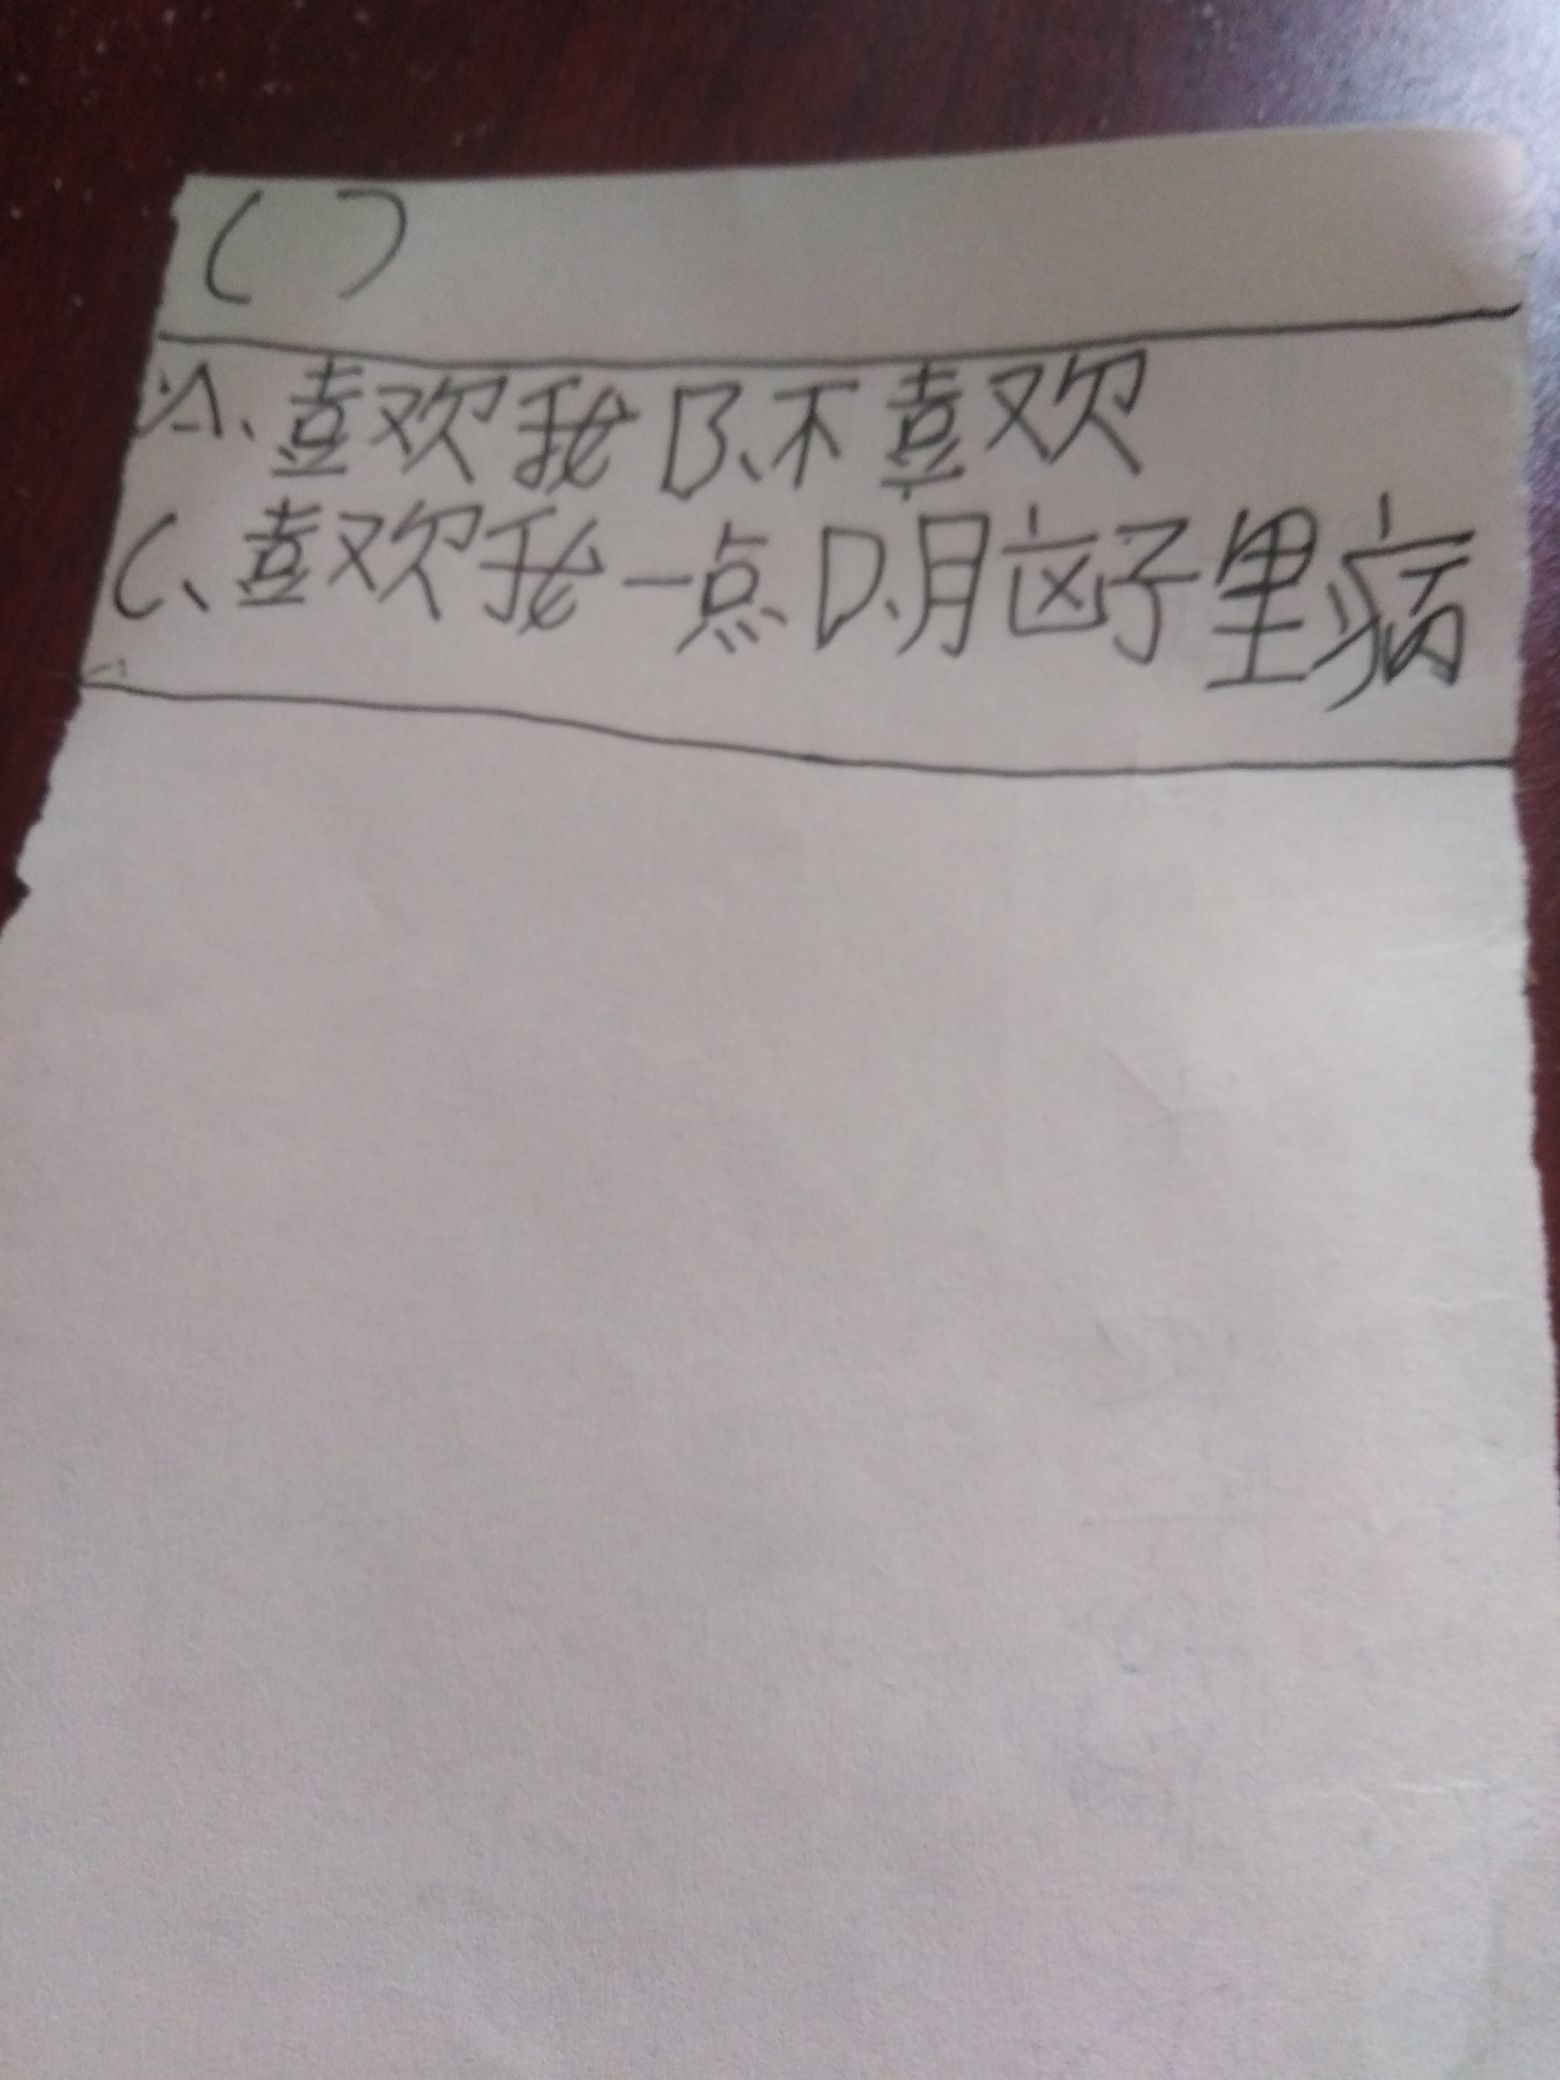 ( )
A、喜欢我 B、不喜欢
C、喜欢我一点 D、脑子里病